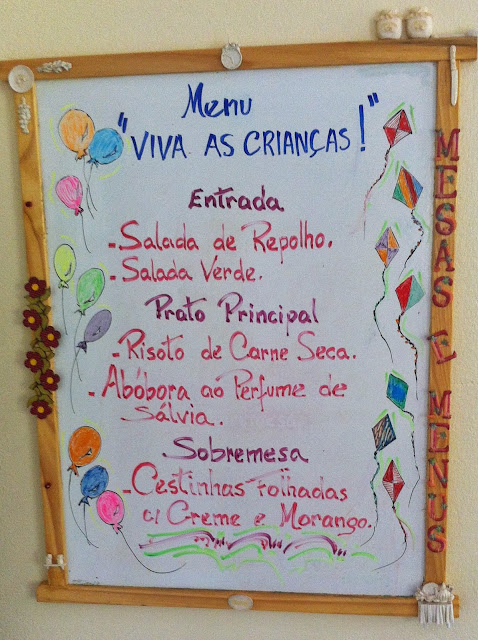 Menu
"VIVA AS CRIANÇAS!"
Entrada
- Salada de Repolho.
- Salada Verde.
Prato Principal
- Risoto de Carne Seca.
- Abóbora ao Perfume de
Sálvia.
Sobremesa
- Cestinhas Folhadas
c/ Creme e Morango.
MESAS E MENUS